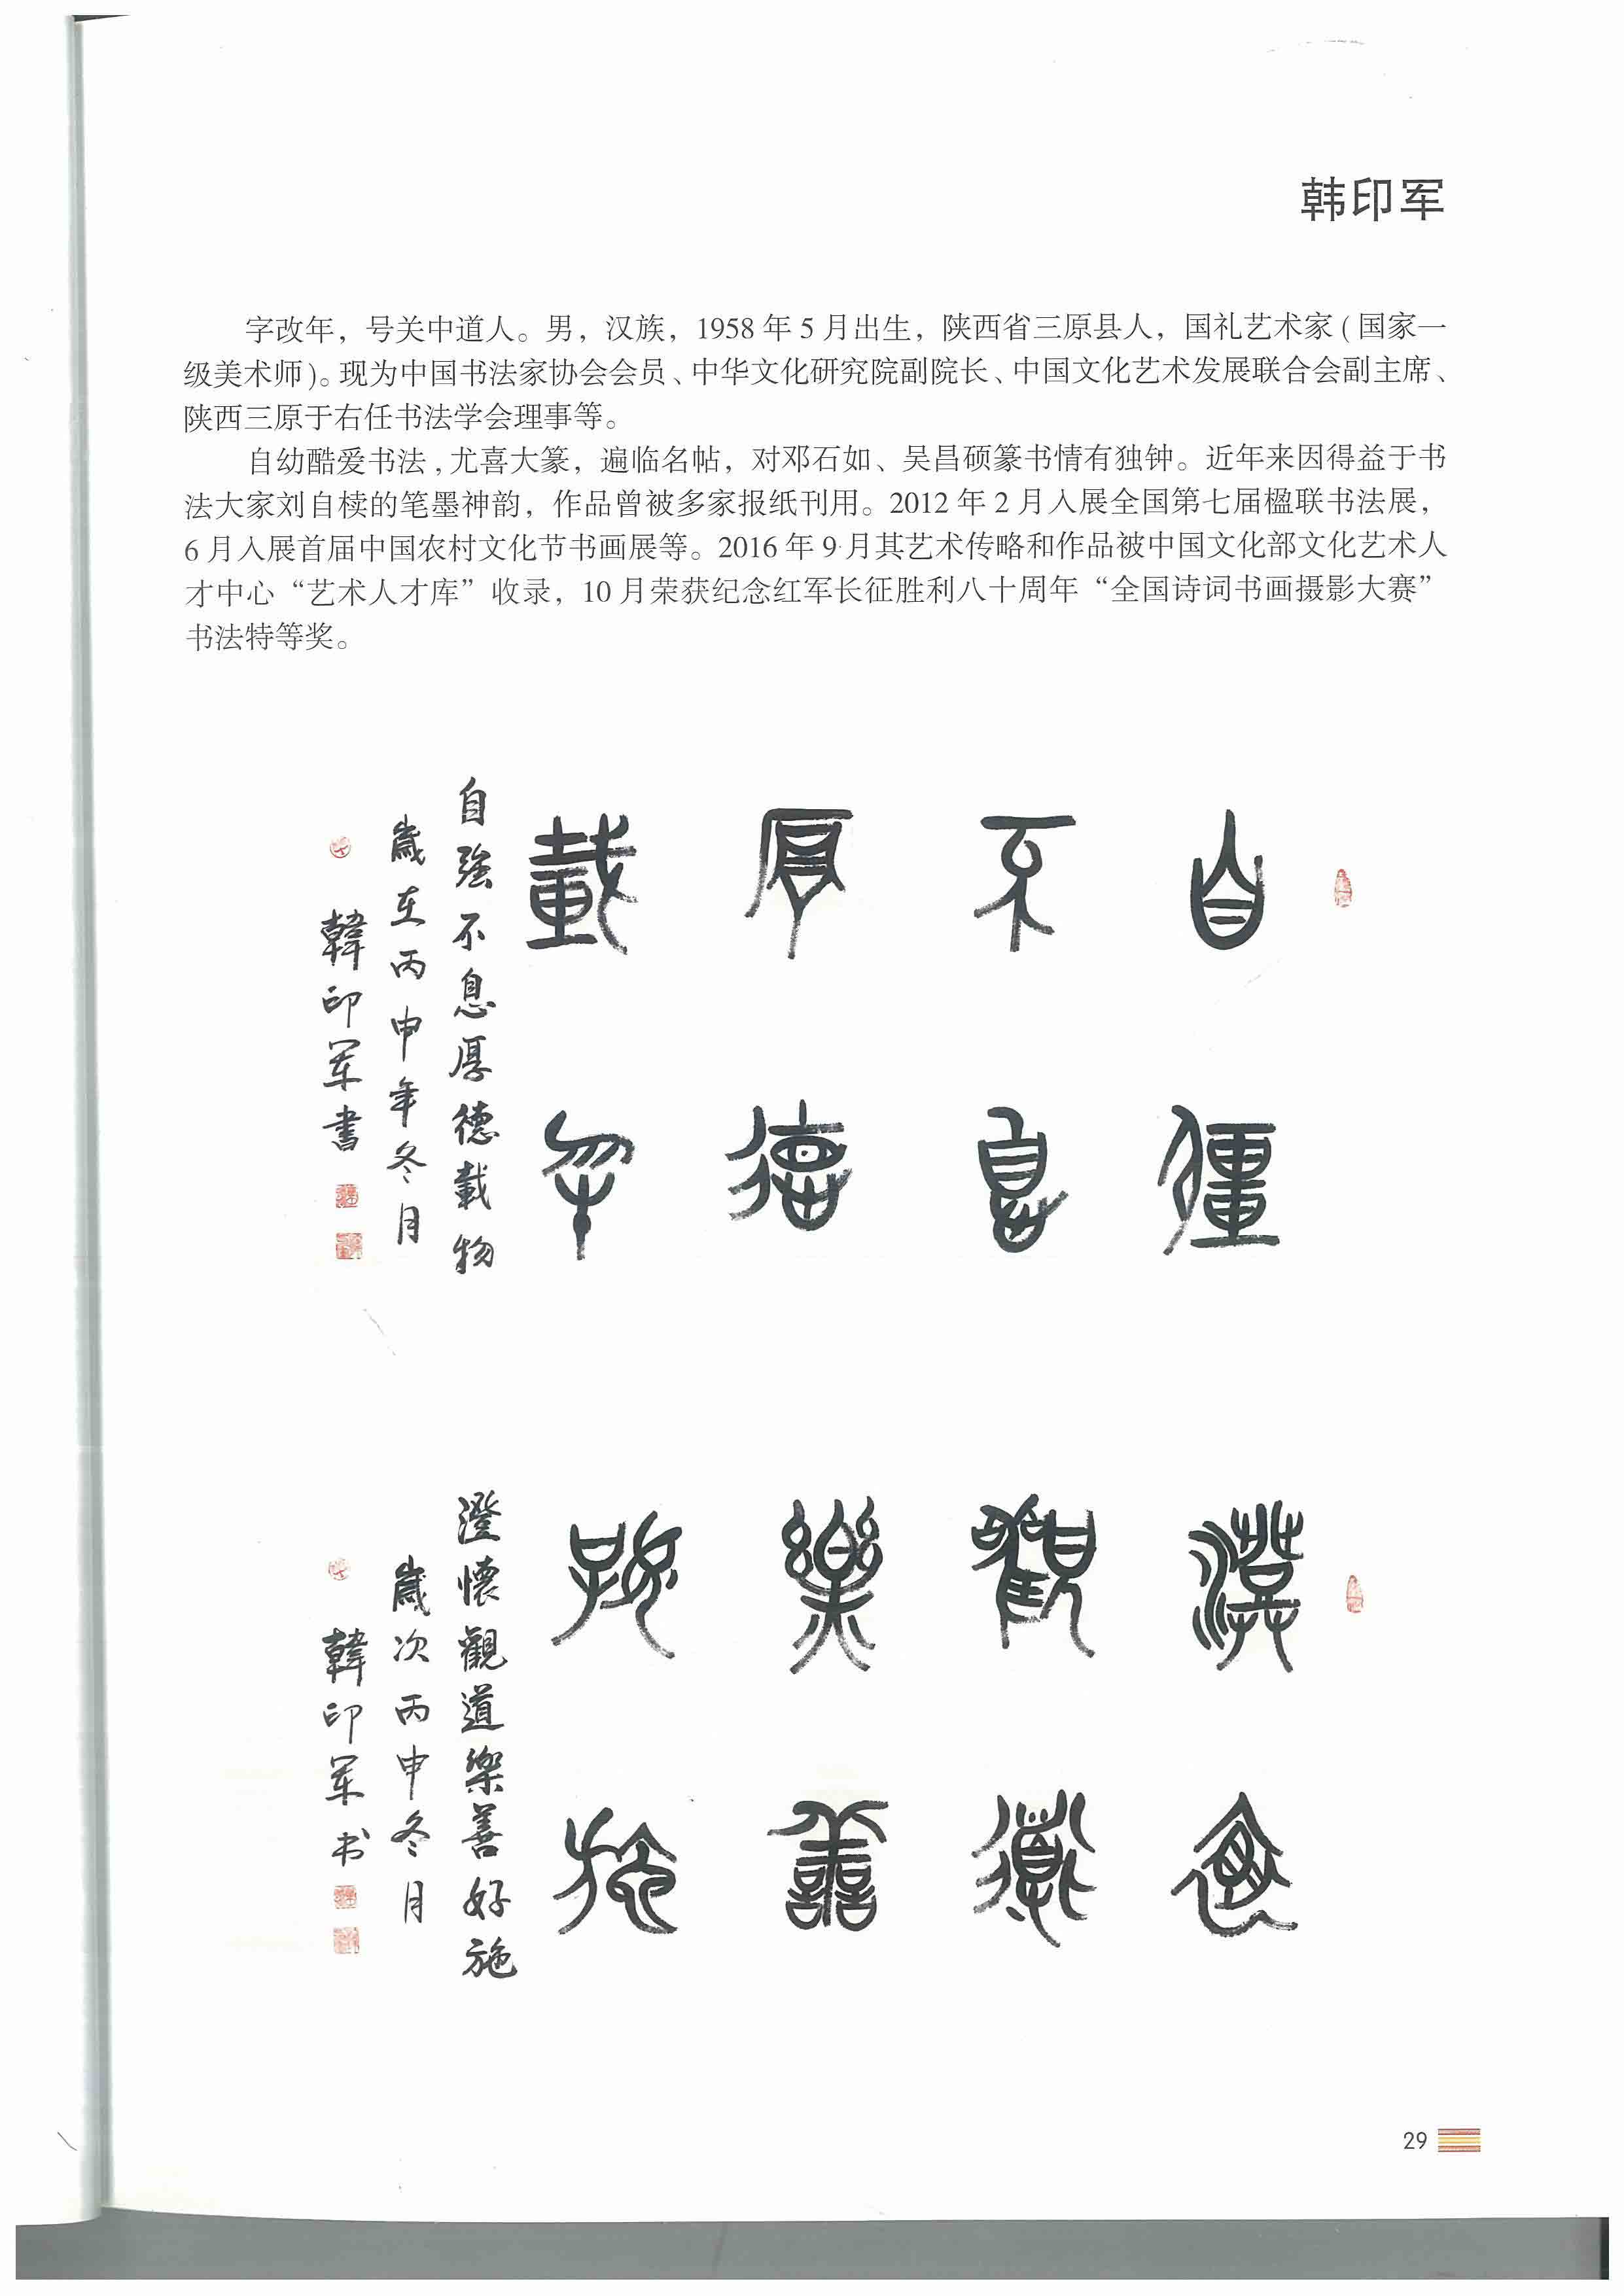 韩印军
字改年，号关中道人。男，汉族，1958 年 5 月出生，陕西省三原县人，国礼艺术家（国家一
级美术师）。现为中国书法家协会会员、中华文化研究院副院长、中国文化艺术发展联合会副主席、
陕西三原于右任书法学会理事等。
自幼酷爱书法，尤喜大篆，遍临名帖，对邓石如、吴昌硕篆书情有独钟。近年来因得益于书
法大家刘自椟的笔墨神韵，作品曾被多家报纸刊用。2012 年 2 月入展全国第七届楹联书法展，
6 月入展首届中国农村文化节书画展等。2016 年 9 月其艺术传略和作品被中国文化部文化艺术人
才中心“艺术人才库”收录，10 月荣获纪念红军长征胜利八十周年“全国诗词书画摄影大赛”
书法特等奖。
自彊
不息
厚德
載物
自強不息厚德載物
歲在丙申年冬月
韓印军書
澄懷
觀道
樂善
好施
澄懷觀道樂善好施
歲次丙申冬月
韓印军书
29